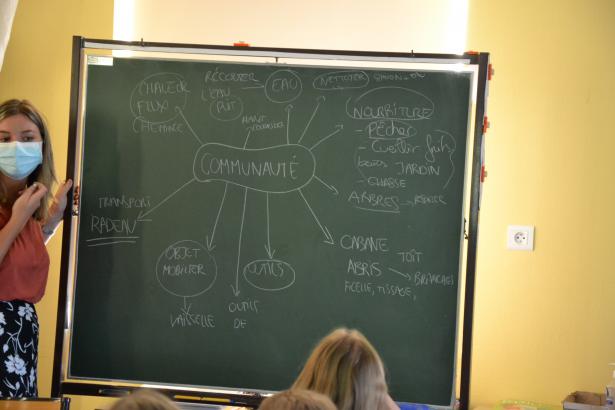 CHALEUR
FLUX
CHEMINÉE
RÉCOLTER
L'EAU
EAU
NETTOYER
NOURRITURE
- PÊCHER
- CUEILLIR fruits
JARDIN
- CHASSE
ARBRES
COMMUNAUTÉ
TRANSPORT
RADEAU
OBJET
MOBILIER
VAISSELLE
OUTILS
OUTILS
DE
CABANE TOÎT
ABRIS → BRANCHES
FICELLE, TISSAGE,